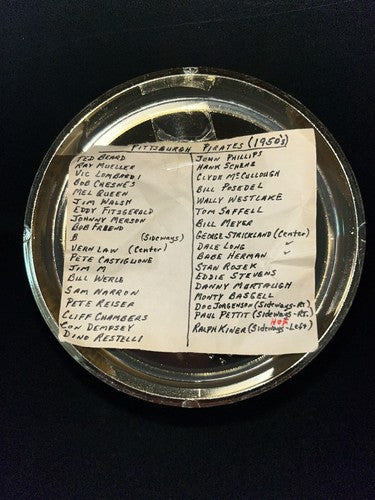 PITTSBURGH PIRATES (1950's)
TED BEARD
RAY MUELLER
VIC LOMBARDI
BOB CHESNES
MEL QUEEN
JIM WALSH
EDDY FITZGERALD
JOHNNY MERSON
BOB FRIEND
B (Sideways)
VERN LAW (Center)
PETE CASTIGLIONE
JIM M
BILL WERLE
SAM NARRON
PETE REISER
CLIFF CHAMBERS
CON DEMPSEY
DINO RESTELLI
JOHN PHILLIPS
HANK SCHENZ
CLYDE McCULLOUGH
BILL POSEDEL
WALLY WESTLAKE
TOM SAFFELL
BILL MEYER
GEORGE STRICKLAND (Center)
DALE LONG ✓
BABE HERMAN ✓
STAN ROJEK
EDDIE STEVENS
DANNY MURTAUGH
MONTY BASGELL
DOC JORGENSON (Sideways-Rt.)
PAUL PETTIT (Sideways-Rt.)
HOF
RALPH KINER (Sideways-Left)